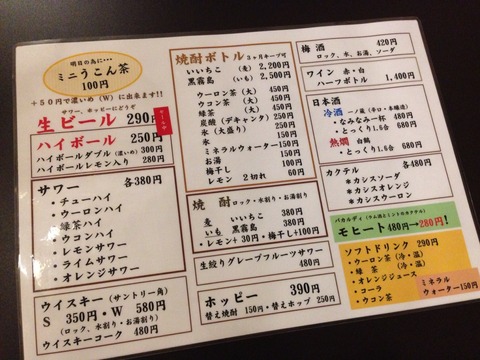 明日の為に…
ミニうこん茶
100円
+50円で濃いめ(W)に出来ます!!
サワー、ホッピーにどうぞ
生ビール 290円
ハイボール 250円
ハイボールダブル(濃いめ) 300円
ハイボールレモン入り 280円
サワー 各380円
・チューハイ
・ウーロンハイ
・緑茶ハイ
・ウコンハイ
・レモンサワー
・ライムサワー
・オレンジサワー
ウイスキー (サントリー角)
S 350円・W 580円
(ロック、水割り・お湯割り)
ウイスキーコーク 480円
焼酎ボトル 3ヶ月キープ可
いいちこ (麦) 2,200円
黒霧島 (いも) 2,500円
ウーロン茶 (大) 450円
ウコン茶 (大) 450円
緑茶 (大) 450円
炭酸 (デキャンタ) 250円
氷 (大盛り) 250円
氷 150円
ミネラルウォーター 150円
お湯 150円
梅干し 100円
レモン 2切れ 60円
焼酎 (ロック・水割り・お湯割り)
麦 いいちこ 380円
いも 黒霧島 380円
・レモン+30円・梅干し+100円
生絞りグレープフルーツサワー
480円
ホッピー 390円
替え焼酎 150円・替えホップ 250円
梅酒 420円
ロック、水、お湯、ソーダ
ワイン 赤・白
ハーフボトル 1,400円
日本酒
冷酒 一ノ蔵(辛口・本醸造)
・なみなみ一杯 480円
・とっくり1.5合 680円
熱燗 白鶴
・とっくり1.5合 680円
カクテル 各480円
*カシスソーダ
*カシスオレンジ
*カシスウーロン
バカルディ (ラム酒とミントのカクテル)
モヒート 480円→280円!
ソフトドリンク 290円
・ウーロン茶(冷・温)
・緑 茶 (冷・温)
・オレンジジュース
・コーラ
・ウコン茶
ミネラル
ウォーター150円